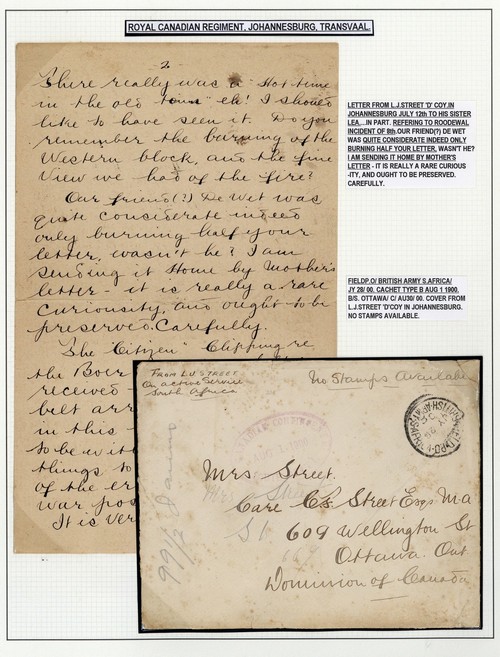 ROYAL CANADIAN REGIMENT, JOHANNESBURG, TRANSVAAL.
2
There really was a "Hot time
in the old town" eh! I should
like to have seen it. Do you
remember the burning of the
Western block, and the fine
View we had of the fire?
Our friend(?) De Wet was
quite considerate indeed
only burning half your
letter, wasn't he? I am
sending it Home by Mother's
letter - it is really a rare
curiosity, and ought to be
preserved. Carefully.
The "Citizen" Clipping re
the Boer
received
belt arr
in this
to be wit
things to
of the er
war pos
It is ver
LETTER FROM L.J.STREET 'D' COY.IN
JOHANNESBURG JULY 12th TO HIS SISTER
LEA...IN PART. REFERING TO ROODEWAL
INCIDENT OF 8th.OUR FRIEND(?) DE WET
WAS QUITE CONSIDERATE INDEED ONLY
BURNING HALF YOUR LETTER, WASN'T HE?
I AM SENDING IT HOME BY MOTHER'S
LETTER - IT IS REALLY A RARE CURIOUS
-ITY, AND OUGHT TO BE PRESERVED.
CAREFULLY.
FIELDP.O/ BRITISH ARMY S.AFRICA/
JY 28/ 00. CACHET TYPE B AUG 1 1900.
B/S. OTTAWA/ C/ AU30/ 00. COVER FROM
L.J.STREET 'D'COY IN JOHANNESBURG.
NO STAMPS AVAILABLE.
FROM L.J. STREET
On active Service
South Africa
No Stamps Available
AUG 1 1900
Mrs. Street.
Care Street Esq. M.A
609 Wellington St
Ottawa. Ont
Dominion of Canada